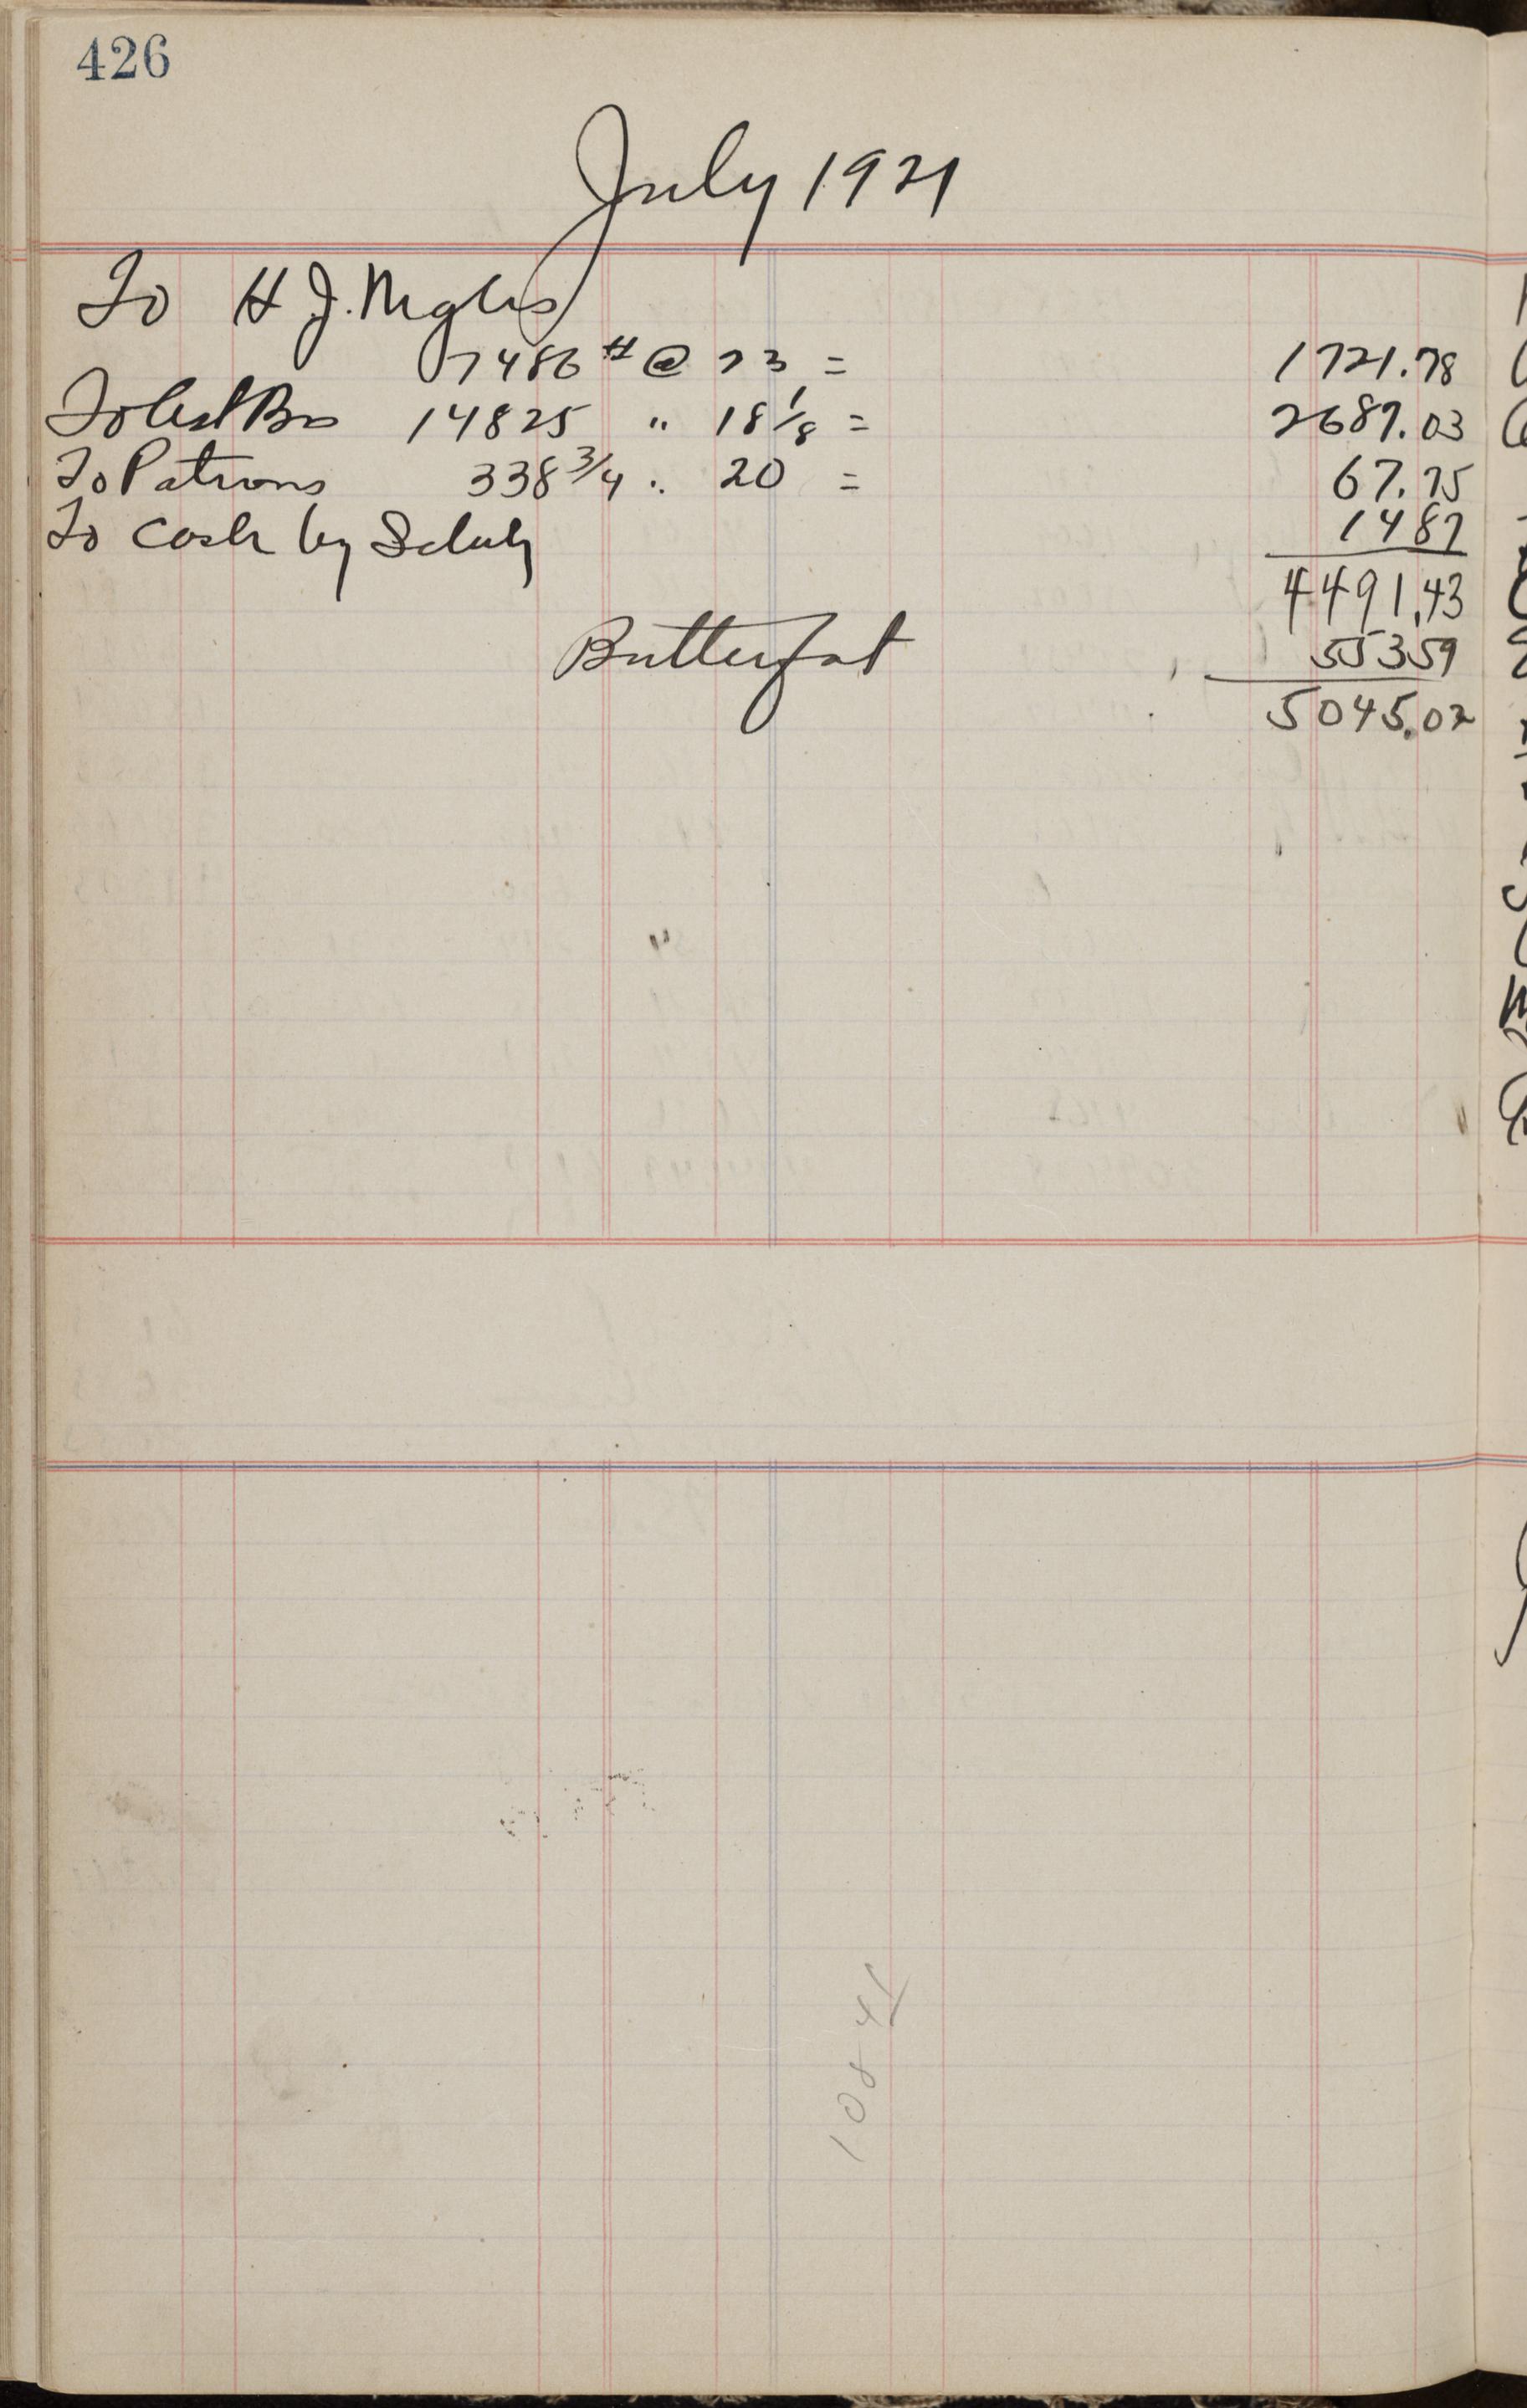 426
July 1921
To H J.
7486 # @ 23 = 1721.78
To Bro 14825 " 18 1/8 = 2687.03
To Patrons 338 3/4 " 20 = 67.75
To Cash by 1487
4491.43
Butterfat 55359
5045.02
10841